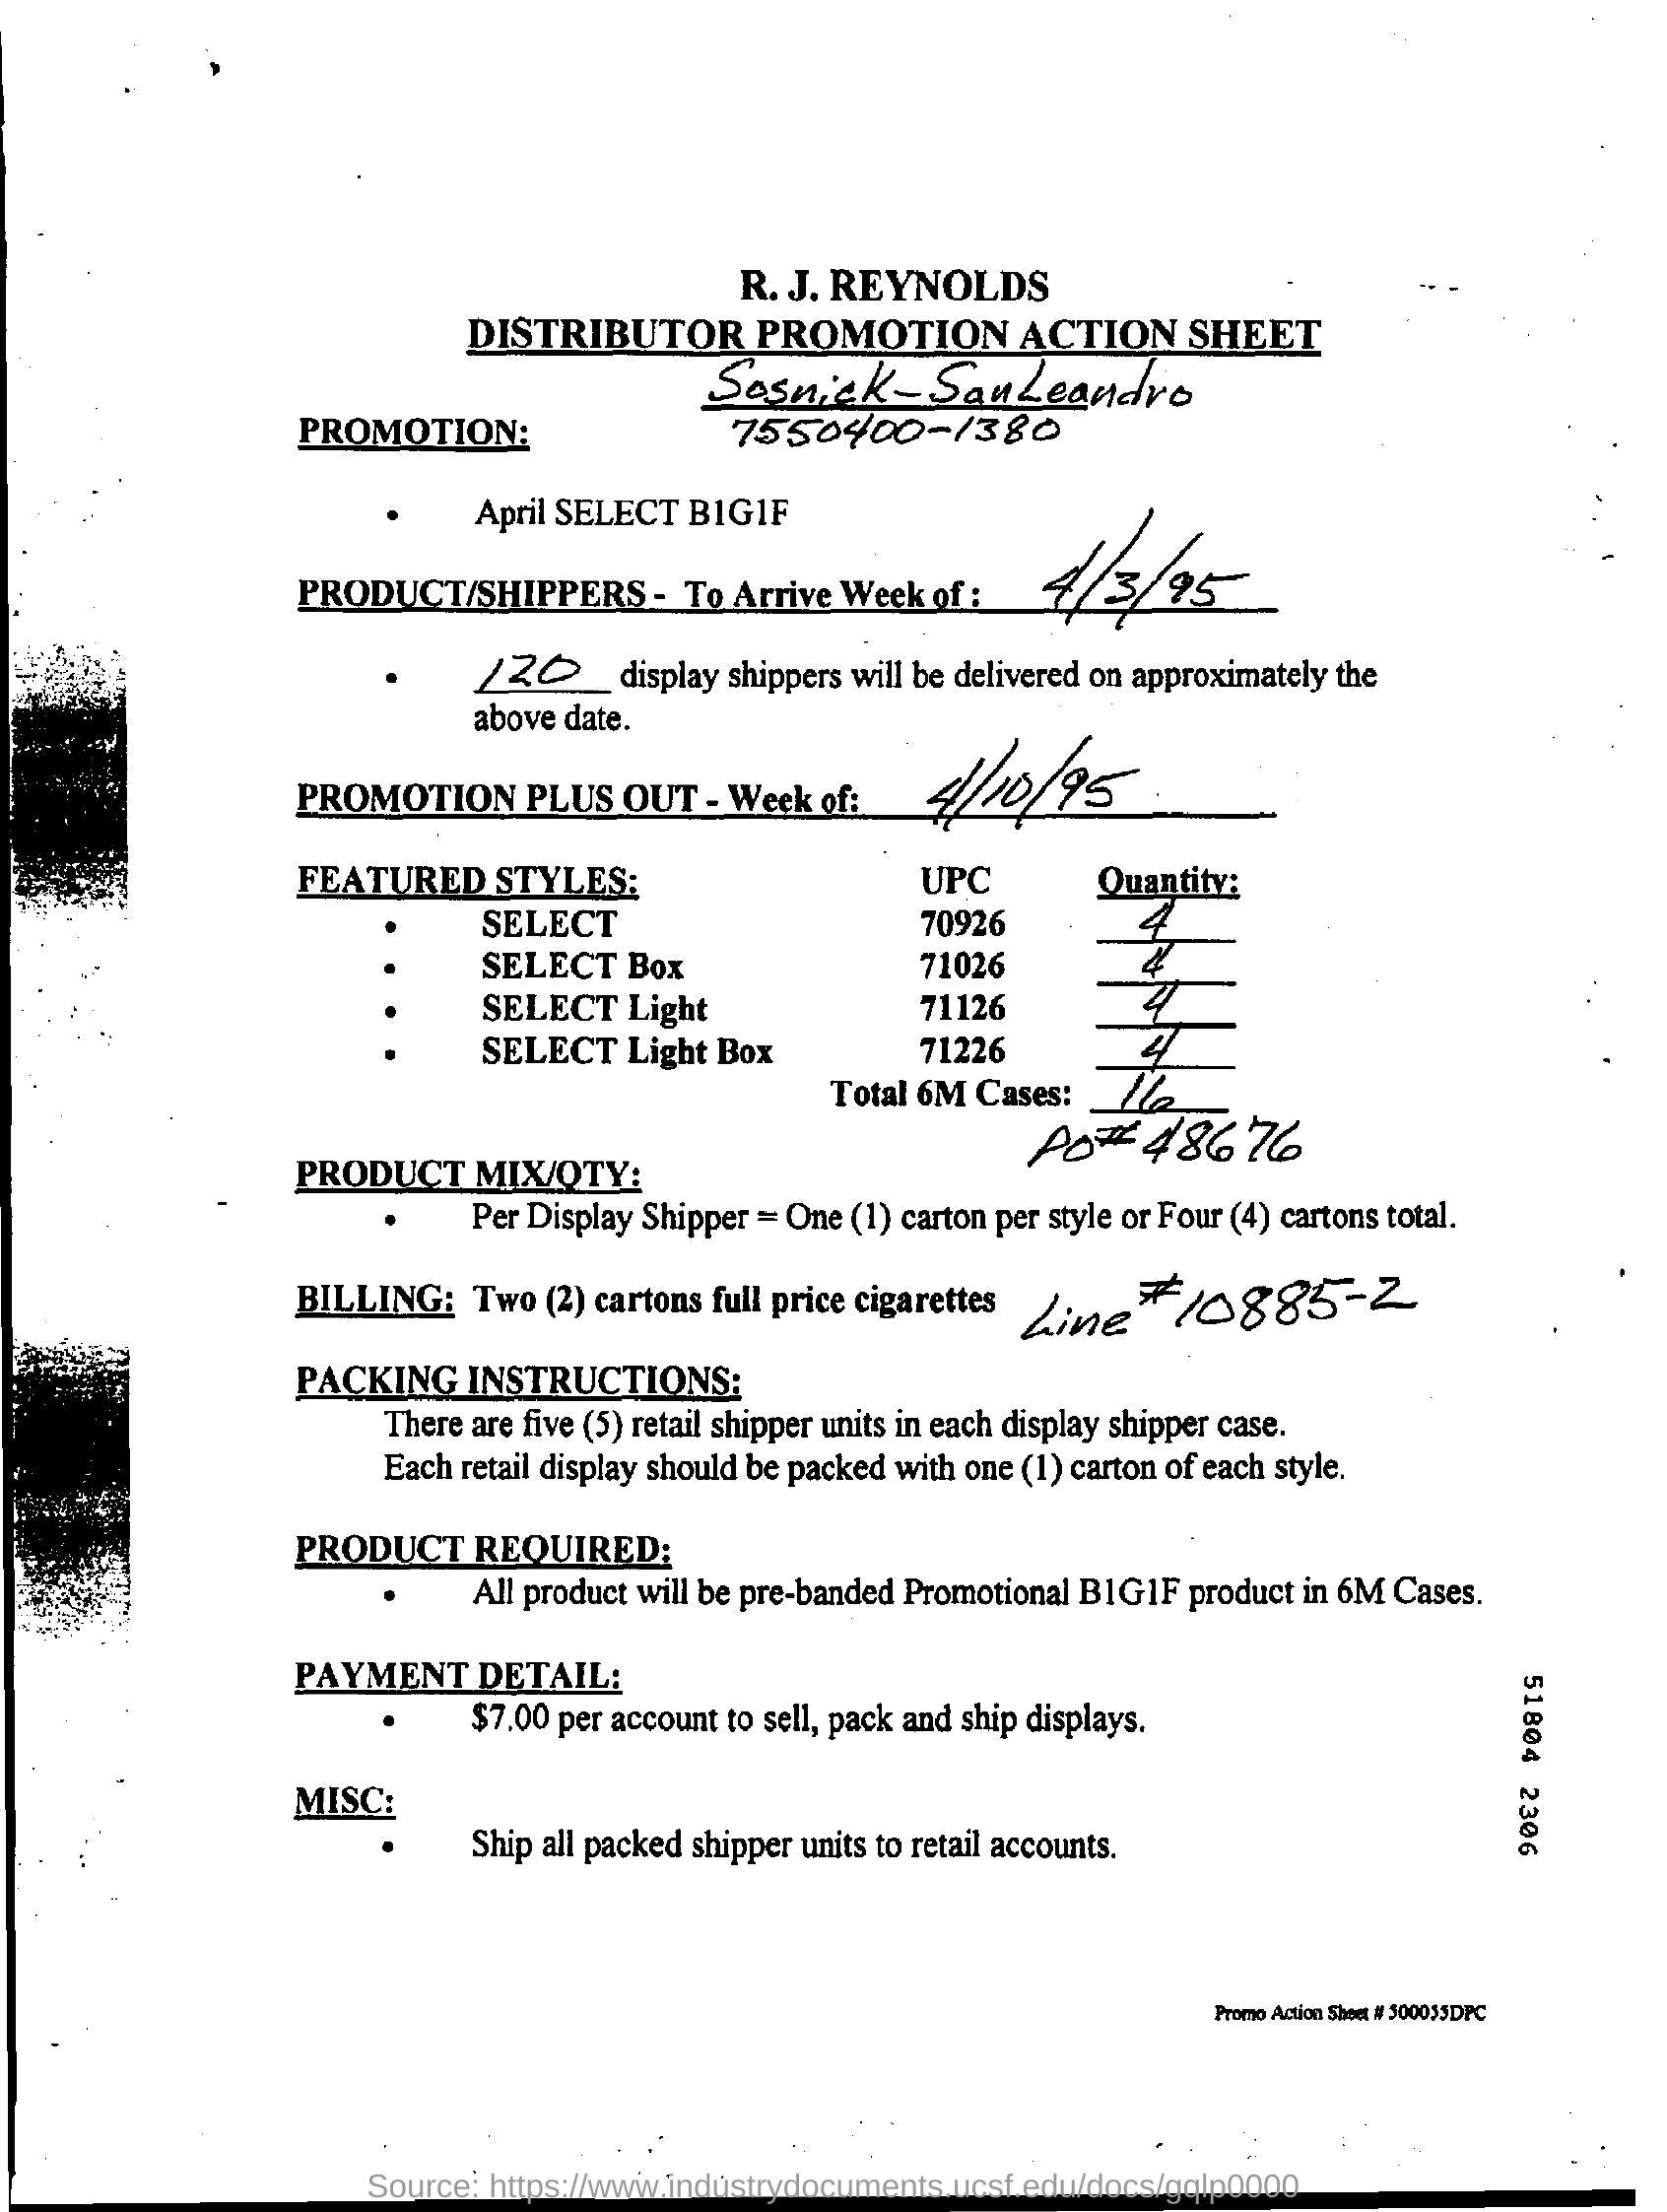 R. J. REYNOLDS
DISTRIBUTOR PROMOTION ACTION SHEET
Sosnick-SanLeandro
PROMOTION: 7550400-1380
• April SELECT B1G1F
PRODUCT/SHIPPERS - To Arrive Week of : 4/3/95
• 120 display shippers will be delivered on approximately the
above date.
PROMOTION PLUS OUT - Week of: 4/10/95
FEATURED STYLES: UPC Quantity:
• SELECT 70926 4
• SELECT Box 71026 4
• SELECT Light 71126 4
• SELECT Light Box 71226 4
Total 6M Cases: 16
PO# 48676
PRODUCT MIX/QTY:
• Per Display Shipper = One (1) carton per style or Four (4) cartons total.
BILLING: Two (2) cartons full price cigarettes Line #10885-2
PACKING INSTRUCTIONS:
There are five (5) retail shipper units in each display shipper case.
Each retail display should be packed with one (1) carton of each style.
PRODUCT REQUIRED:
• All product will be pre-banded Promotional B1G1F product in 6M Cases.
PAYMENT DETAIL:
• $7.00 per account to sell, pack and ship displays.
MISC:
• Ship all packed shipper units to retail accounts.
51804 2306
Promo Action Sheet # 500035DPC
Source: https://www.industrydocuments.ucsf.edu/docs/gqlp0000